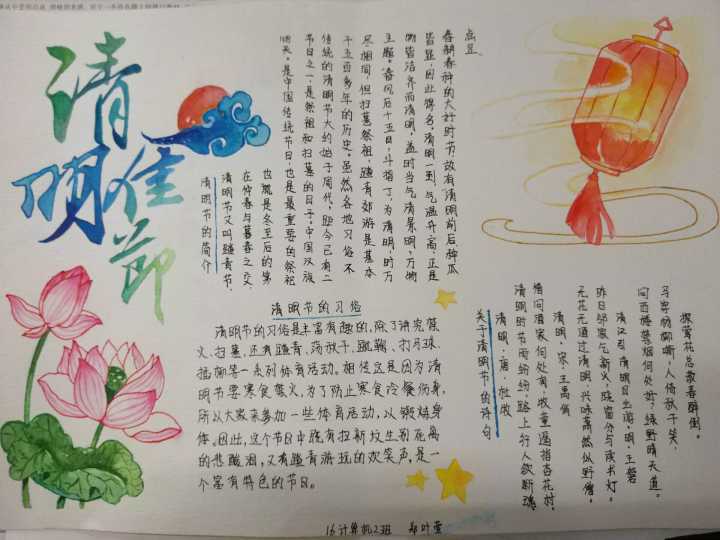 清明佳节
清明节的简介
清明节又叫踏青节，
在仲春与暮春之交，
也就是冬至后的第
明天。是中国传统节日，也是最重要的祭祖
节日之一，是祭祖和扫墓的日子。中国汉族
传统的清明节大约始于周代，距今已有二
千五百多年的历史。虽然各地习俗不
尽相同，但扫墓祭祖，踏青郊游是基本
主题。春风后十五日，斗指丁，为清明，时万
物皆洁齐而清明，盖时当气清景明，万物
皆显，因此得名。清明一到，气温升高，正是
春耕春种的大好时节，故有清明前后，种瓜
点豆
清明节的习俗
清明节的习俗是丰富有趣的，除了讲究禁
火、扫墓，还有踏青、荡秋千、蹴鞠、打马球、
插柳等一系列体育活动。相传这是因为清
明节要寒食禁火，为了防止寒食冷餐伤身，
所以大家来参加一些体育活动，以锻炼身
体。因此，这个节日中既有扫新坟生别死离
的悲酸泪，又有踏青游玩的欢笑声，是一
个富有特色的节日。
关于清明节的诗句
清明·唐·杜牧
清明时节雨纷纷，路上行人欲断魂，
借问酒家何处有，牧童遥指杏花村。
清明·宋·王禹偁
无花无酒过清明，兴味萧然似野僧，
昨日邻家乞新火，晓窗分与读书灯。
清江引清明日出游·明·王磐
问西楼禁烟何处好？绿野晴天道。
马穿杨柳嘶，人倚秋千笑，
探莺花总教春醉倒。
16计算机2班 郑叶莹